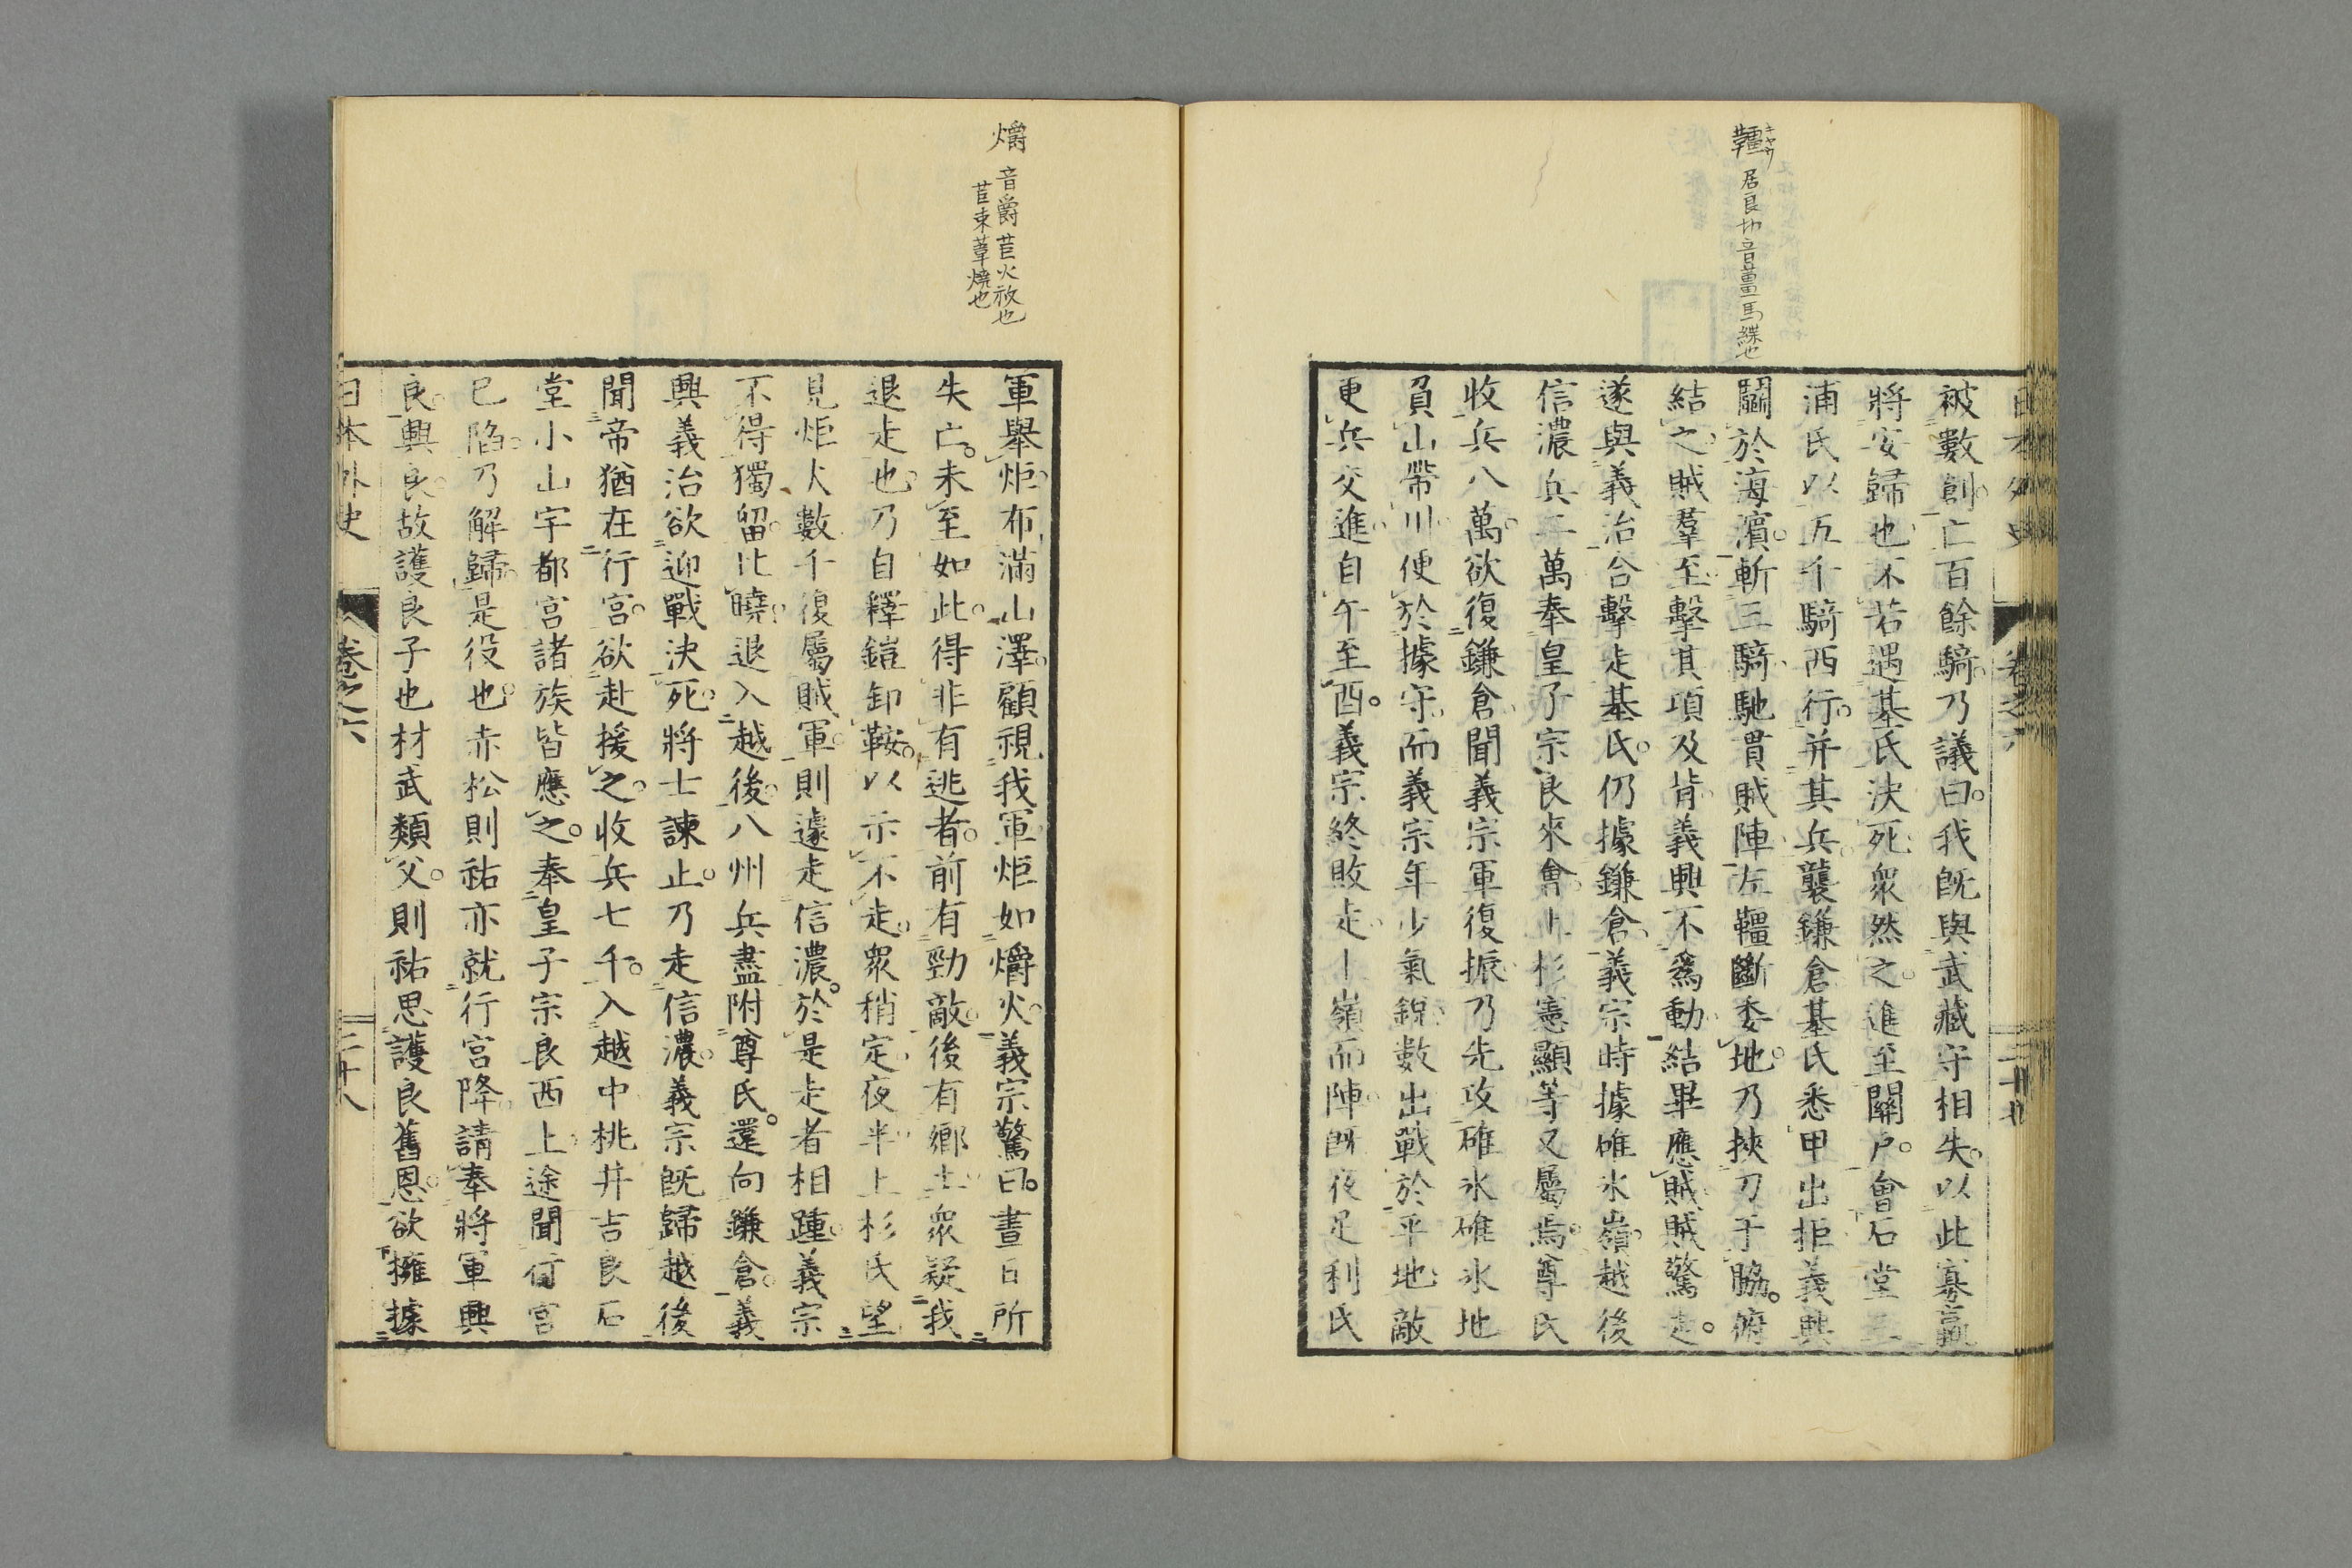 韁 居良切音薑馬緤也
キヤウ
被數創亡百餘騎乃議曰我既與武藏守相失以此寡羸
將安歸也不若遇基氏決死衆然之進至關戶會石堂三
浦氏以五千騎西行并其兵襲鎌倉基氏悉甲出拒義興
鬭於海濱斬三騎馳貫賊陣左韁斷委地乃挾刀于脇俯
結之賊羣至擊其項及背義興不爲動結畢應賊賊驚走
遂與義治合擊走基氏仍據鎌倉義宗時據碓氷嶺越後
信濃兵二萬奉皇子宗良來會上杉憲顯等又屬焉尊氏
收兵八萬欲復鎌倉聞義宗軍復振乃先攻碓氷碓氷地
負山帶川便於據守而義宗年少氣銳數出戰於平地敵
更兵交進自午至酉義宗終敗走上嶺而陣既夜足利氏
爝 音爵苣火祓也
苣束葦燒也
軍舉炬布滿山澤顧視我軍炬如爝火義宗驚曰晝日所
失亡未至如此得非有逃者前有勁敵後有鄉土衆疑我
退走也乃自釋鎧卸鞍以示不走衆稍定夜半上杉氏望
見炬火數千復屬賊軍則遽走信濃於是走者相踵義宗
不得獨留比曉退入越後八州兵盡附尊氏還向鎌倉義
興義治欲迎戰決死將士諫止乃走信濃義宗既歸越後
聞帝猶在行宮欲赴援之收兵七千入越中桃井吉良石
堂小山宇都宮諸族皆應之奉皇子宗良西上途聞行宮
已陷乃解歸是役也赤松則祐亦就行宮降請奉將軍興
良興良故護良子也材武類父則祐思護良舊恩欲擁據
日本外史 卷之六 二十八